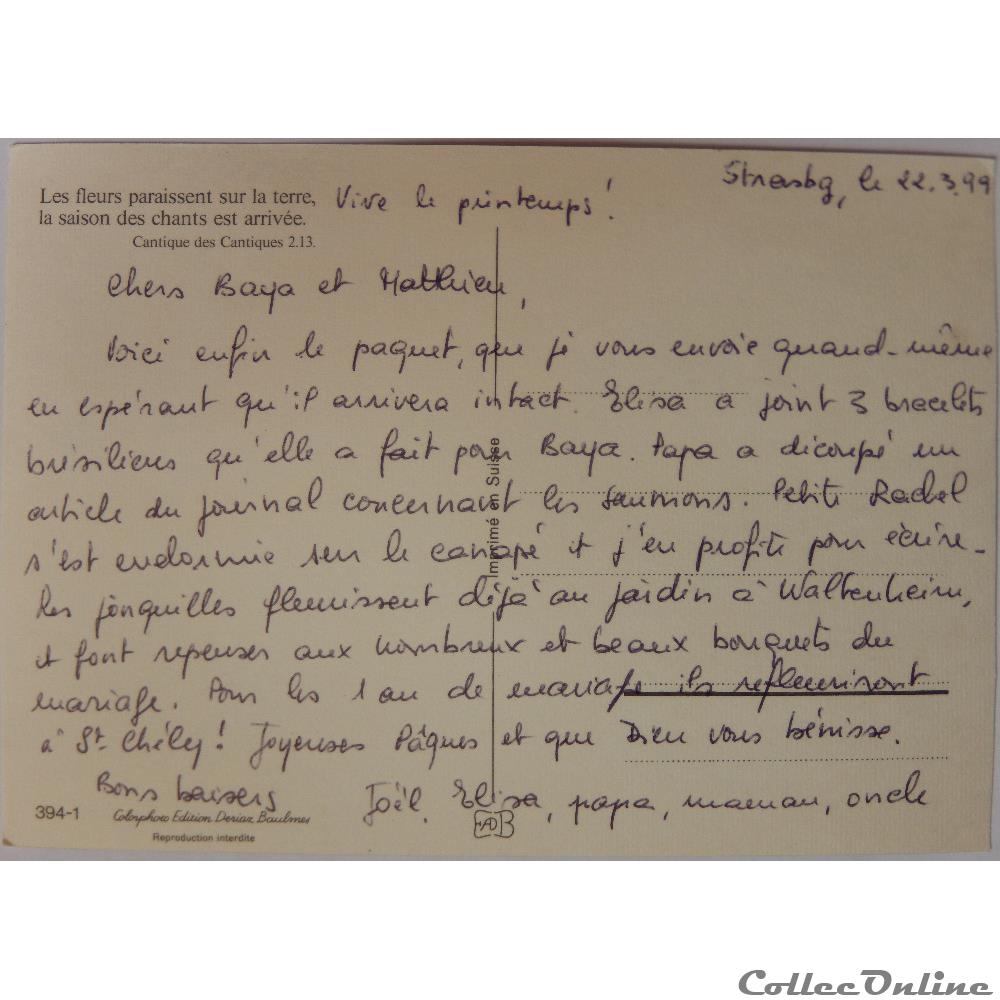 Strasbg, le 22.3.99
Les fleurs paraissent sur la terre,
la saison des chants est arrivée.
Cantique des Cantiques 2.13.
Vive le printemps !
Chers Baya et Matthieu,
Voici enfin le paquet, que je vous envoie quand-même
en espérant qu'il arrivera intact. Elisa a joint 3 bracelets
brésiliens qu'elle a fait pour Baya. Papa a découpé un
article du journal concernant les saumons. Petite Rachel
s'est endormie sur le canapé et j'en profite pour écrire.
Les jonquilles fleurissent déjà au jardin à Waltenheim,
et font repenser aux nombreux et beaux bouquets du
mariage. Pour les 1 an de mariage ils refleuriront
à St-Chély ! Joyeuses Pâques et que Dieu vous bénisse.
Bons baisers
Joël, Elisa, papa, maman, oncle
Imprimé en Suisse
394-1
Colorphoto Edition Deriaz Baulmes
Reproduction interdite
CollecOnline